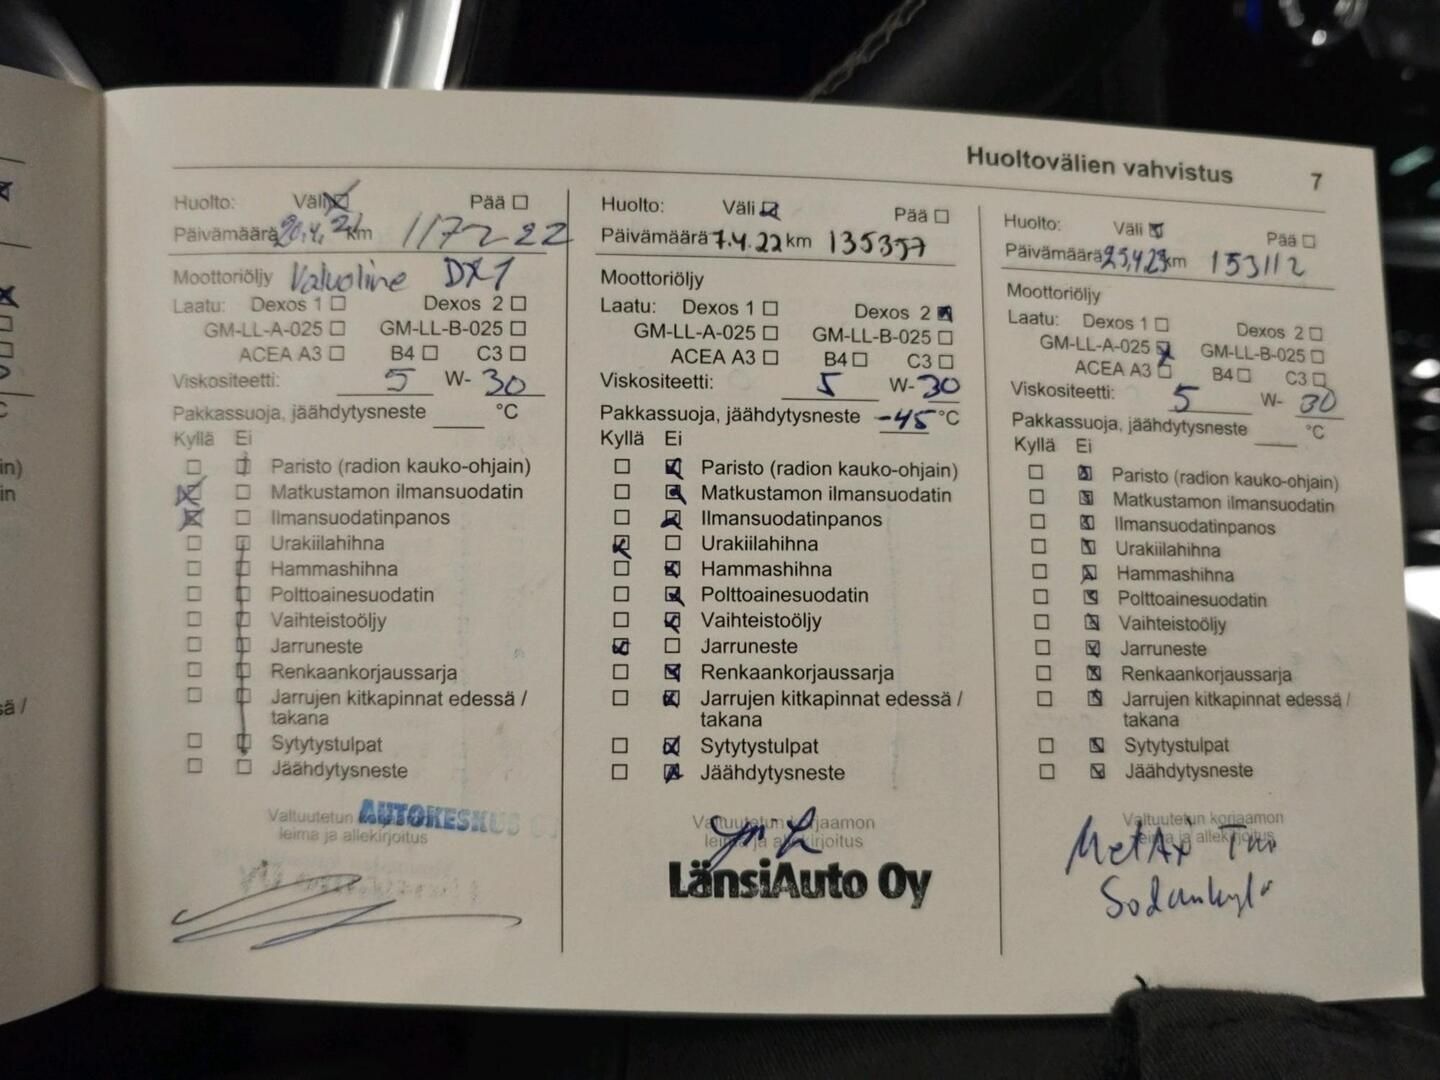 Huoltovälien vahvistus 7
Huolto: Väli Pää
Päivämäärä 20,4,21 km 117222
Moottoriöljy Valvoline DX1
Laatu: Dexos 1 Dexos 2
GM-LL-A-025 GM-LL-B-025
ACEA A3 B4 C3
Viskositeetti: 5 W- 30
Pakkassuoja, jäähdytysneste °C
Kyllä Ei
Paristo (radion kauko-ohjain)
Matkustamon ilmansuodatin
Ilmansuodatinpanos
Urakiilahihna
Hammashihna
Polttoainesuodatin
Vaihteistoöljy
Jarruneste
Renkaankorjaussarja
Jarrujen kitkapinnat edessä /
takana
Sytytystulpat
Jäähdytysneste
Valtuutetun AUTOKESKUS
leima ja allekirjoitus
Huolto: Väli Pää
Päivämäärä 7.4.22 km 135357
Moottoriöljy
Laatu: Dexos 1 Dexos 2
GM-LL-A-025 GM-LL-B-025
ACEA A3 B4 C3
Viskositeetti: 5 W- 30
Pakkassuoja, jäähdytysneste -45 °C
Kyllä Ei
Paristo (radion kauko-ohjain)
Matkustamon ilmansuodatin
Ilmansuodatinpanos
Urakiilahihna
Hammashihna
Polttoainesuodatin
Vaihteistoöljy
Jarruneste
Renkaankorjaussarja
Jarrujen kitkapinnat edessä /
takana
Sytytystulpat
Jäähdytysneste
Valtuutetun korjaamon
leima ja allekirjoitus
LänsiAuto Oy
Huolto: Väli Pää
Päivämäärä 25,4,23 km 153112
Moottoriöljy
Laatu: Dexos 1 Dexos 2
GM-LL-A-025 GM-LL-B-025
ACEA A3 B4 C3
Viskositeetti: 5 W- 30
Pakkassuoja, jäähdytysneste °C
Kyllä Ei
Paristo (radion kauko-ohjain)
Matkustamon ilmansuodatin
Ilmansuodatinpanos
Urakiilahihna
Hammashihna
Polttoainesuodatin
Vaihteistoöljy
Jarruneste
Renkaankorjaussarja
Jarrujen kitkapinnat edessä /
takana
Sytytystulpat
Jäähdytysneste
Valtuutetun korjaamon
leima ja allekirjoitus
Sodankylä